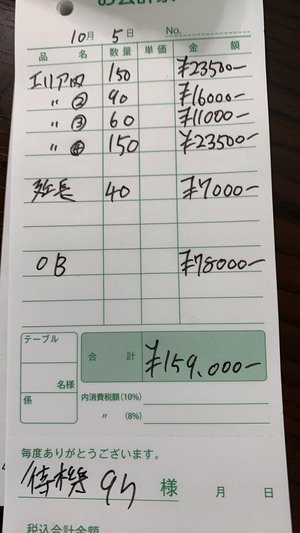 お会計票
10月5日 No.
品名 数量 単価 金額
エリア内 150 ¥23500-
〃② 90 ¥16000-
〃③ 60 ¥11000-
〃④ 150 ¥23500-
延長 40 ¥7000-
OB ¥78000-
テーブル 合計 ¥159,000-
名様
係 内消費税額(10%)
〃 (8%)
毎度ありがとうございます。
待機 9h 様 月 日
税込会計金額